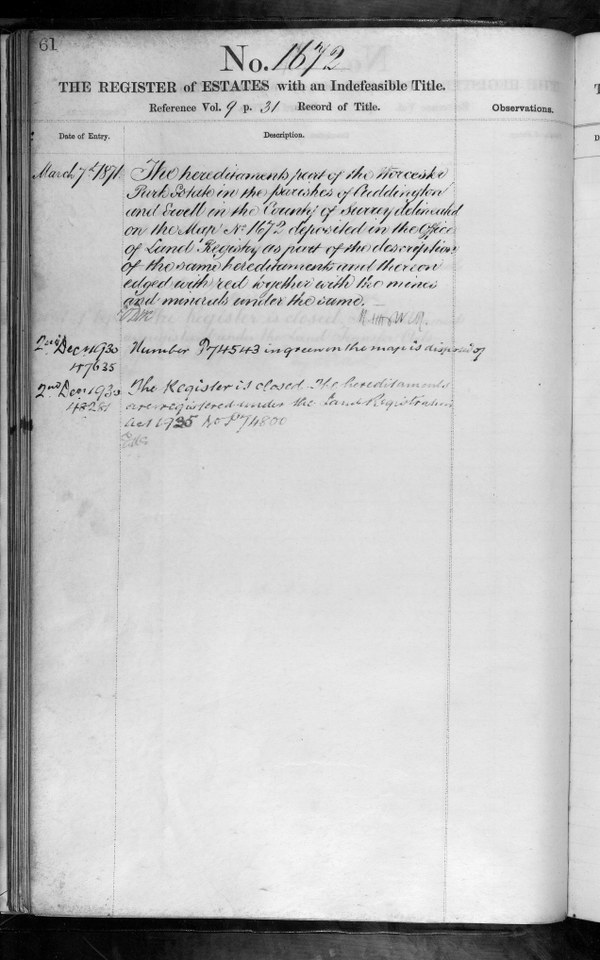 61
No. 1672
THE REGISTER of ESTATES with an Indefeasible Title.
Reference Vol. 9 p. 31 Record of Title.
Observations.
Date of Entry.
Description.
March 7th 1871
The hereditaments part of the Worcester
Park Estate in the parishes of Cuddington
and Ewell in the County of Surrey delineated
on the Map No 1672 deposited in the Office
of Land Registry as part of the description
of the same hereditaments and thereon
edged with red together with the mines
and minerals under the same.
2nd Decr 1930
Number P74543 in green on the map is disposed of
47635
2nd Decr 1930
The Register is closed. The hereditaments
are registered under the Land Registration
Act 1925 No P74800